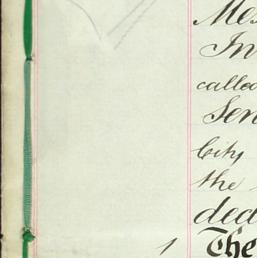 Mes
In
called
Sen
City
the
ded
1 The